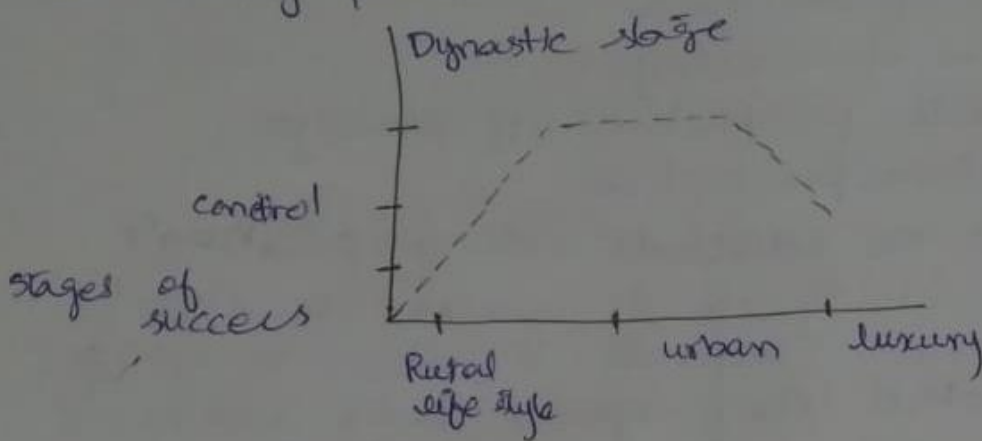 Dynastic stage
control
stages of
success
Rural
life style
urban
luxury